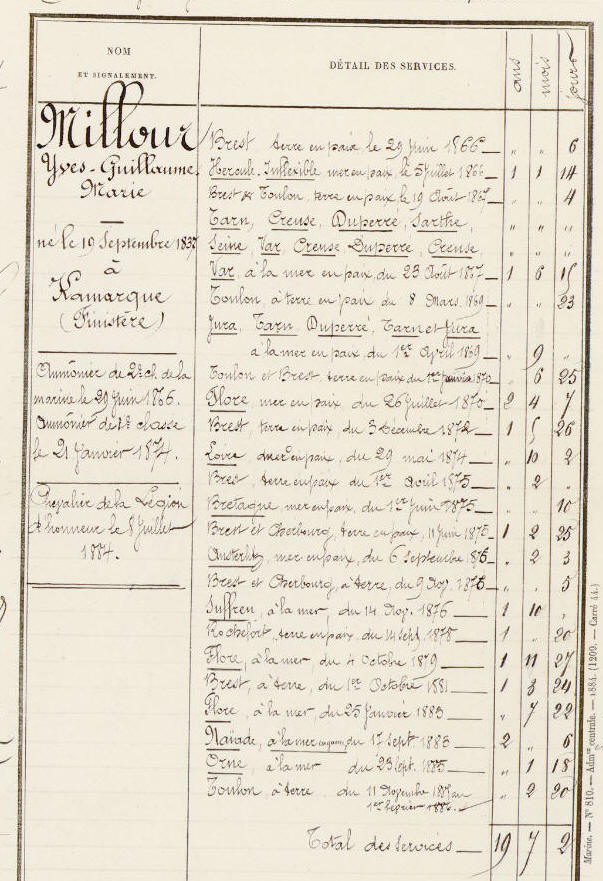 NOM
ET SIGNALEMENT.
DÉTAIL DES SERVICES.
ans
mois
jours
Millour
Yves-Guillaume
Marie
né le 19 Septembre 1837
à
Kamarque
(Finistère)
Aumônier de 2e cl. de la
marine le 29 Juin 1866.
Aumônier de 1e classe
le 21 Janvier 1874.
Chevalier de la Légion
d'honneur le 8 Juillet
1884.
Brest, terre en paix le 29 Juin 1866 " " 6
Hercule. Inflexible mer en paix, le 5 Juillet 1866 1 1 14
Brest & Toulon, terre en paix le 19 Août 1867 " " 4
Tarn, Creuse, Duperré, Sarthe, " " "
Seine, Var, Creuse Duperré, Creuse, " " "
Var, à la mer en paix, du 23 Août 1867 1 6 15
Toulon, à terre en paix du 8 Mars 1869 " " 23
Jura, Tarn, Duperré, Tarn et Jura
à la mer en paix, du 1er April 1869 " 9 "
Toulon et Brest, terre en paix du 1er Janvier 1870 " 6 25
Flore, mer en paix, du 26 Juillet 1870 2 4 7
Brest, terre en paix, du 3 Décembre 1872 1 5 26
Loire mer en paix, du 29 mai 1874 " 10 2
Brest, terre en paix du 1er Avril 1875 " 2 "
Bretagne mer en paix, du 1er Juin 1875 " " 10
Brest et Cherbourg, terre en paix, 11 Juin 1875 1 2 25
Austerlitz, mer en paix, du 6 Septembre 1876 " 2 3
Brest et Cherbourg, à terre, du 9 Nov. 1876 " " 5
Suffren, à la mer, du 14 Nov. 1876 1 10 "
Rochefort, terre en paix, du 14 Sept. 1878 1 " 20
Flore, à la mer, du 4 Octobre 1879 1 11 27
Brest, à terre, du 1er Octobre 1881 1 3 24
Flore, à la mer, du 25 Janvier 1883 " 7 22
Naïade, à la mer en paix, du 17 Sept. 1883 2 " 6
Orne, à la mer du 23 Sept. 1885 " 1 18
Toulon, à terre, du 11 Novembre au " 2 20
1er Février 1886.
Total des Services 19 7 2
Marine. — N° 810. — Admon centrale. — 1884. (1200. — Carré 44.)